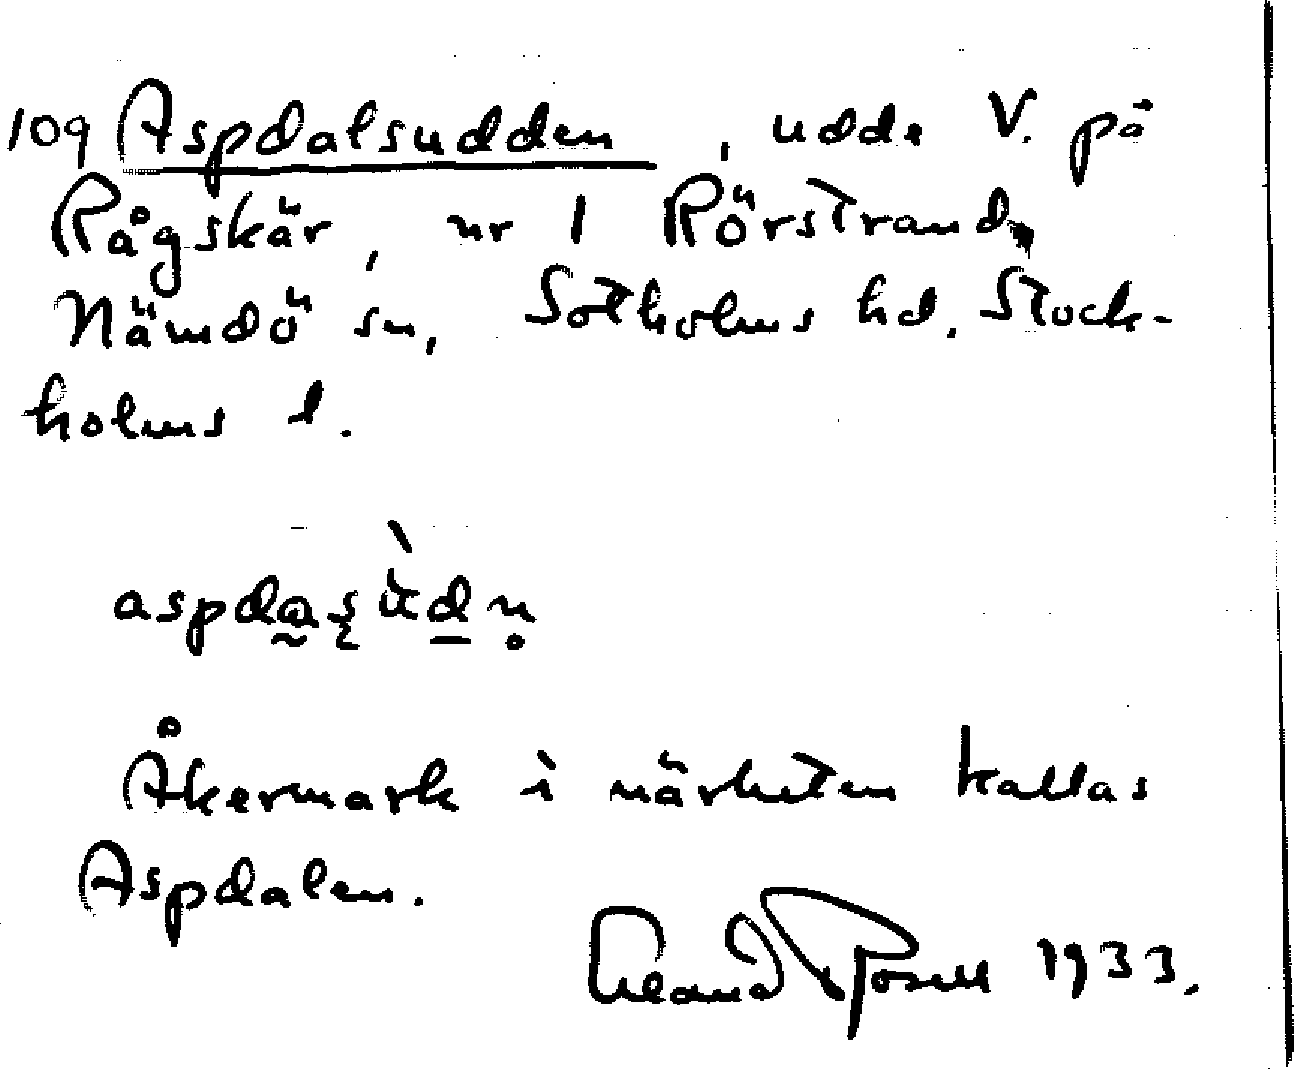 109 Aspdalsudden, udde V. på
Rågskär, nr 1 Rörstrand,
Nämdö sn, Sotholms hd, Stock-
holms l.
aspdasùdn
Åkermark i närheten kallas
Aspdalen.
1933.